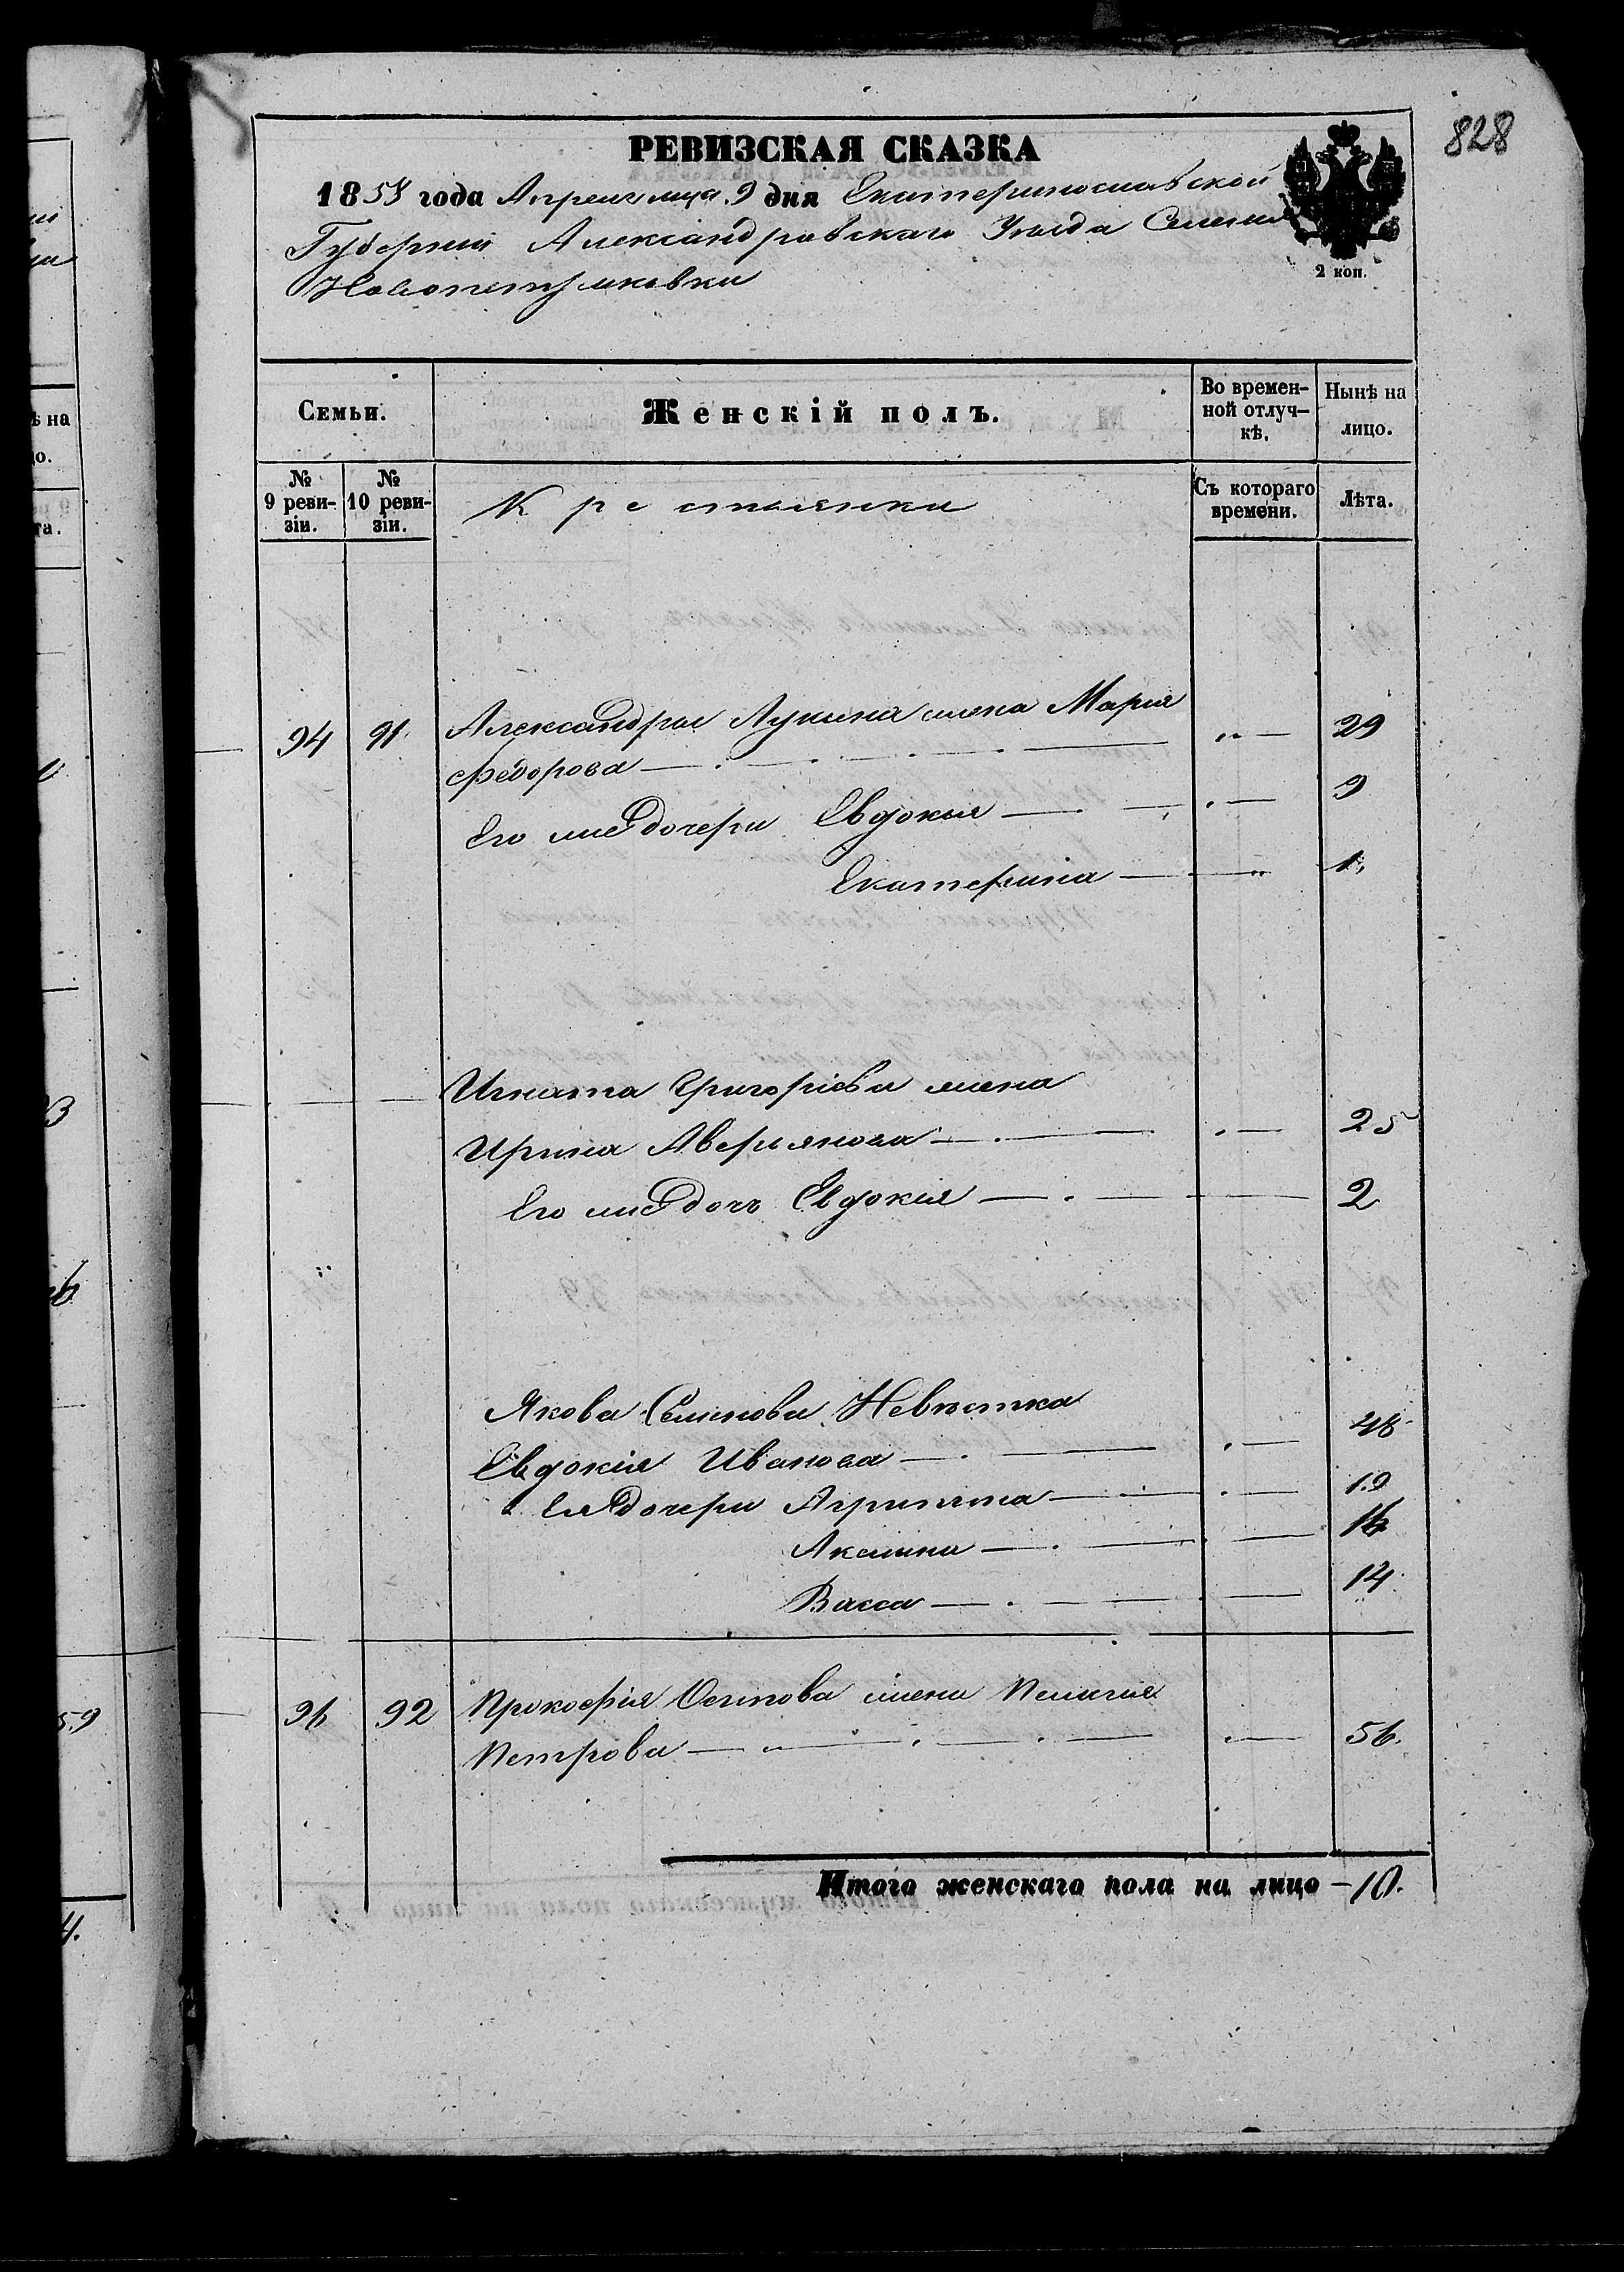 828
РЕВИЗСКАЯ СКАЗКА
1858 года Апреля мца 9 дня Екатеринославской
Губернии Александровскаго Уезда Селения
2 коп.
Семьи.
Женскій полъ.
Во времен-
ной отлуч-
кѣ.
Нынѣ на
лицо.
№
9 реви-
зіи.
№
10 реви-
зіи.
Крестьянки
Съ котораго
времени.
Лѣта.
94 91 Александры Лукина жена Мария
Федорова 29
Его жъ дочери Евдокия 9
Екатерина 1
Игната Григоріева жена
Ирина Аверьянова 25
Его жъ дочь Евдокия 2
Якова Семенова Невѣстка
Евдокія Иванова 48
Ея дочери Агрипина 19
Аксинья 16
Васса 14
96 92 Прокофія Осипова жена Пелагия
Петрова 56.
Итого женскаго пола на лицо – 10.